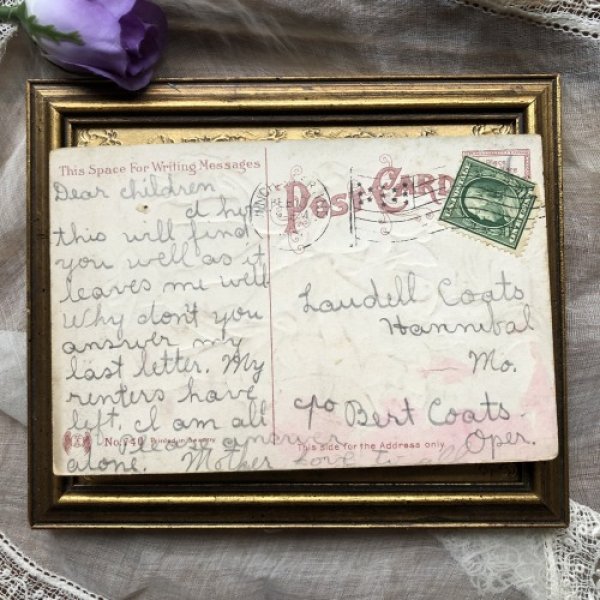 This Space For Writing Messages
Dear children
I
this will find
you well as it
leaves me well
Why don't you
answer my
last letter. My
renters have
left. I am all
Pleas answer
alone. Mother Love to all
No. 740 Printed in
Post Card
Place
Laudell Coats
Hannibal
Mo.
c/o Bert Coats.
Oper.
This side for the Address only